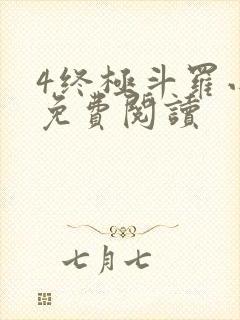 4终極斗羅小
免費閱讀
七月七